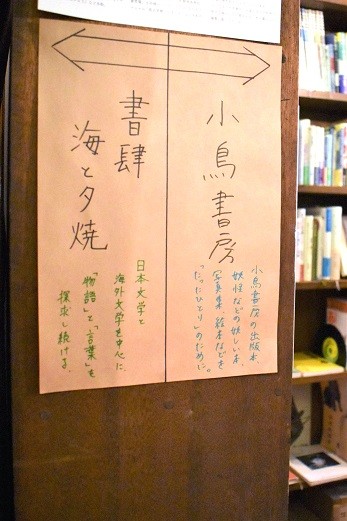 小鳥書房
小鳥書房の出版本、
妖怪などの妖しい本、
写真集、絵本などを
「たったひとり」のために。
書肆
海と夕焼
日本文学と
海外文学を中心に、
「物語」と「言葉」を
探求し続ける。